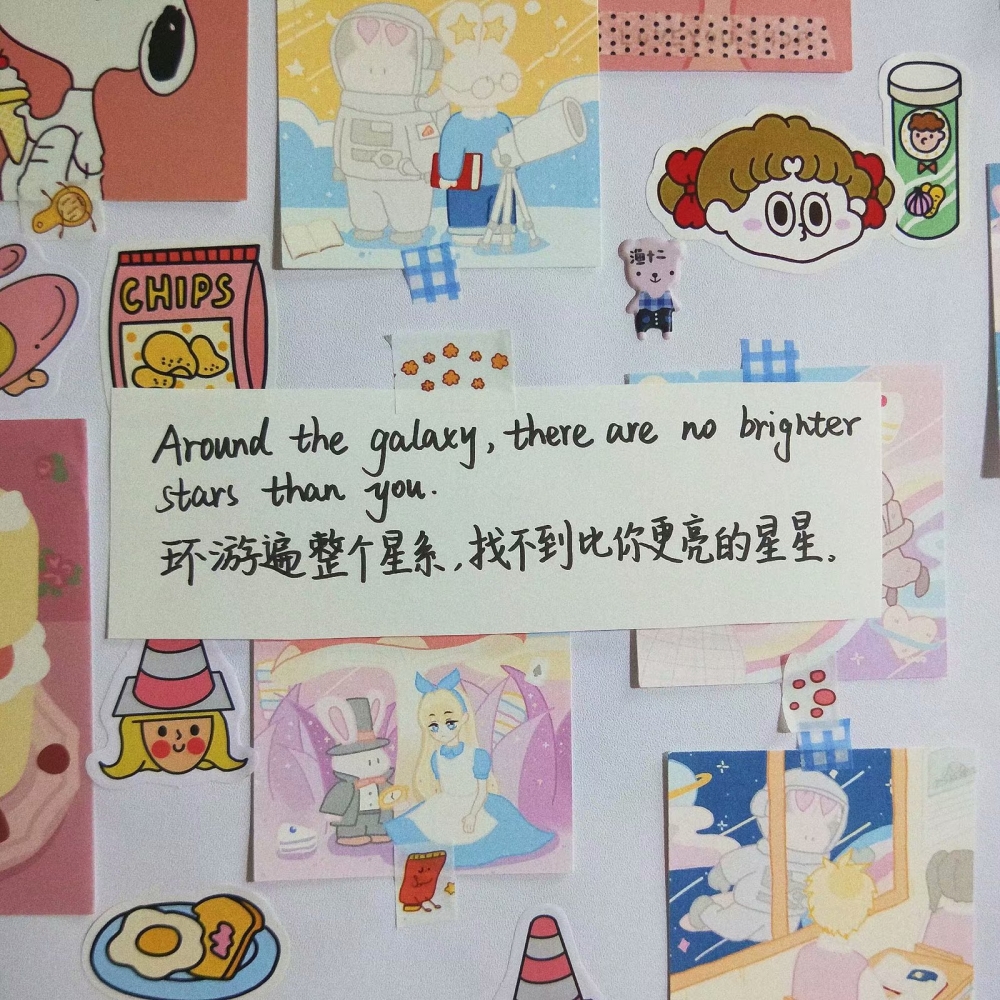 CHIPS
Around the galaxy, there are no brighter
stars than you.
环游遍整个星系,找不到比你更亮的星星。